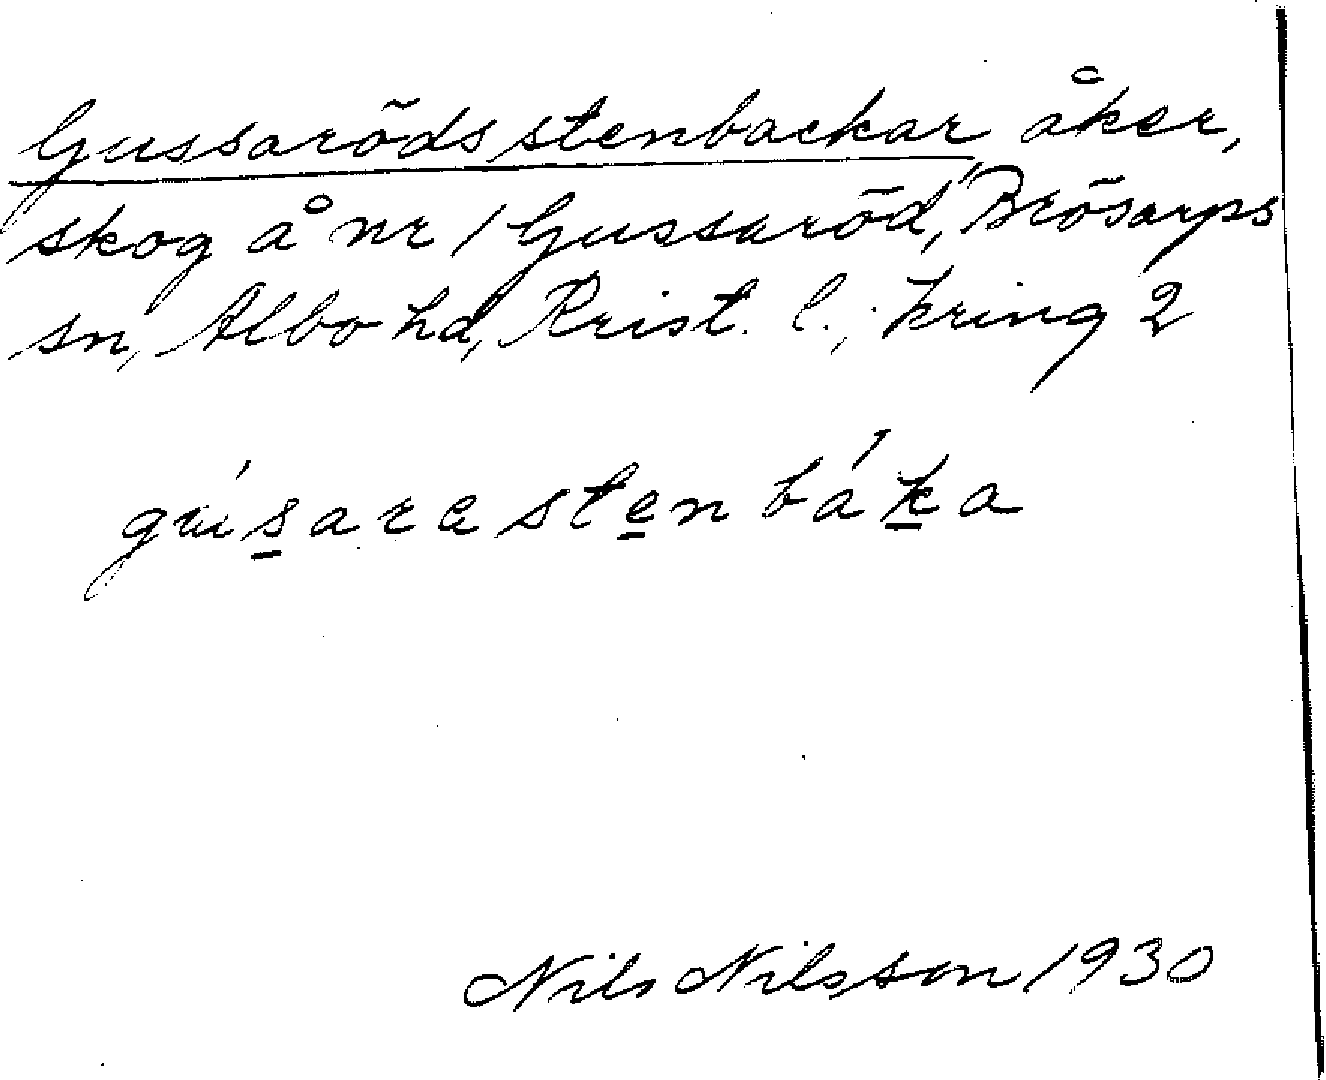 Gussarödsstenbackar, åker,
skog å nr 1 Gussaröd, Brösarps
sn, Albo hd, Krist. l.; kring 2
gúsararastenbáka
Nils Nilsson 1930